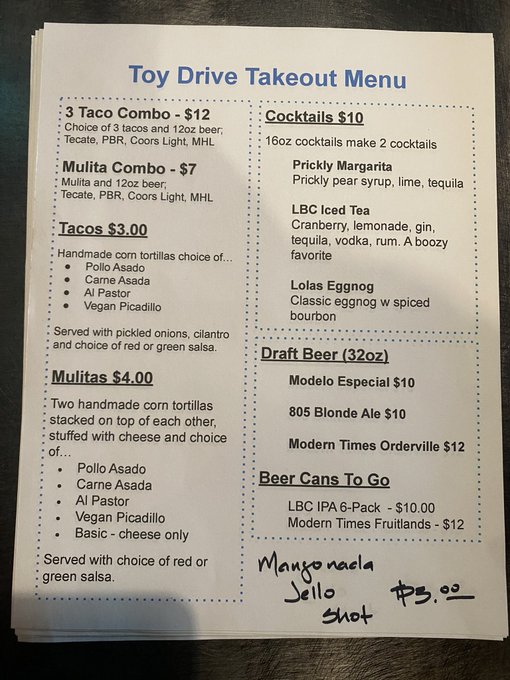 Toy Drive Takeout Menu
3 Taco Combo - $12
Choice of 3 tacos and 12oz beer;
Tecate, PBR, Coors Light, MHL
Mulita Combo - $7
Mulita and 12oz beer;
Tecate, PBR, Coors Light, MHL
Tacos $3.00
Handmade corn tortillas choice of…
• Pollo Asado
• Carne Asada
• Al Pastor
• Vegan Picadillo
Served with pickled onions, cilantro
and choice of red or green salsa.
Mulitas $4.00
Two handmade corn tortillas
stacked on top of each other,
stuffed with cheese and choice
of…
• Pollo Asado
• Carne Asada
• Al Pastor
• Vegan Picadillo
• Basic - cheese only
Served with choice of red or
green salsa.
Cocktails $10
16oz cocktails make 2 cocktails
Prickly Margarita
Prickly pear syrup, lime, tequila
LBC Iced Tea
Cranberry, lemonade, gin,
tequila, vodka, rum. A boozy
favorite
Lolas Eggnog
Classic eggnog w spiced
bourbon
Draft Beer (32oz)
Modelo Especial $10
805 Blonde Ale $10
Modern Times Orderville $12
Beer Cans To Go
LBC IPA 6-Pack - $10.00
Modern Times Fruitlands - $12
Mangonada
Jello
Shot $3.00